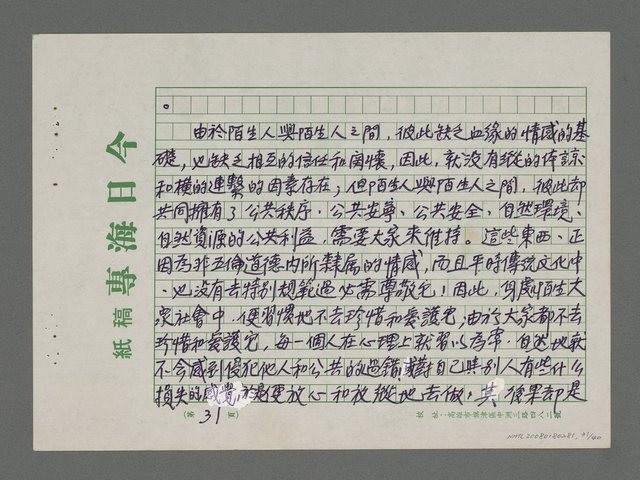 今日海專
稿紙
。
由於陌生人與陌生人之間，彼此缺乏血緣的情感的基
礎，也缺乏相互的信任和關懷，因此，就没有縱的体諒
和橫的連繫的因素存在；但陌生人與陌生人之間，彼此却
共同擁有了公共秩序、公共安寧、公共安全、自然環境、
自然資源的公共利益，需要大家來維持。這些東西、正
因為非五倫道德内所隸属的情感，而且平時傳統文化中
、也没有去特别規範過必需尊敬它；因此，身處陌生大
衆社會中，便習慣地不去珍惜和愛護它，由於大家都不去
珍惜和愛護它，每一個人在心理上就習以為常，自然地就
不會感到侵犯他人和公共的過錯，對自己與别人有些什么
損失的感覺，於是便放心和放縱地去做，其後果却是
（第31頁
校址：高雄市旗津區中洲三路四八二號
NMTL20080180281_41/140